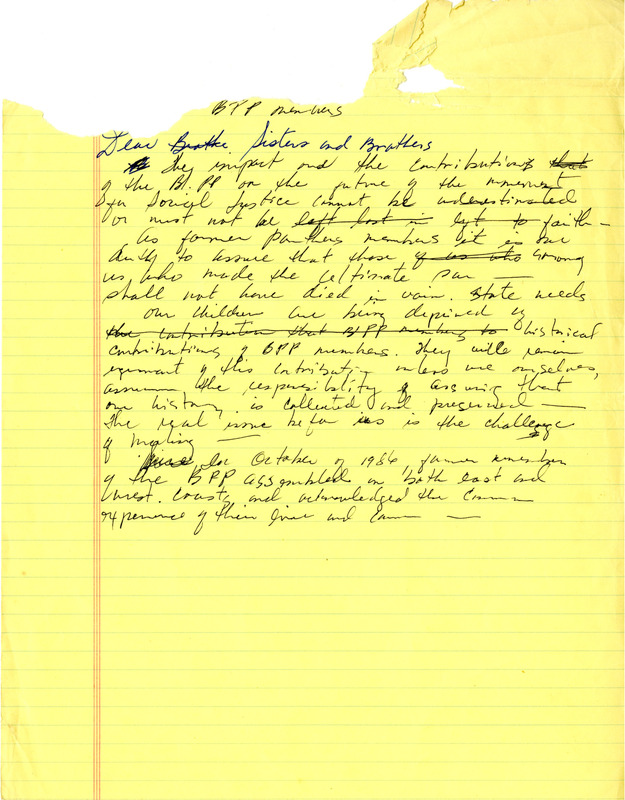 BPP members
Dear Brothe Sisters and Brothers
They impact and the contributions that
of the Bl. PP on the future of the movement
for Social Justice cannot be underestimated
or must not be left lost in left to faith—
As former panthers members it is our
duty to assure that those of us who among
us who made the ultimate sac —
shall not have died in vain. State needs
our children are being deprived of
the contribution that BPP members to historical
contributions of BPP members. They will remain
of this contribution unless we ourselves,
assume the responsibility of assuring that
our history is collected and preserved —
The real issue before us is the challenge
of
In October of 1986 former members
of the BPP assembled on both east and
west coasts and acknowledged the common
experience of their lives and